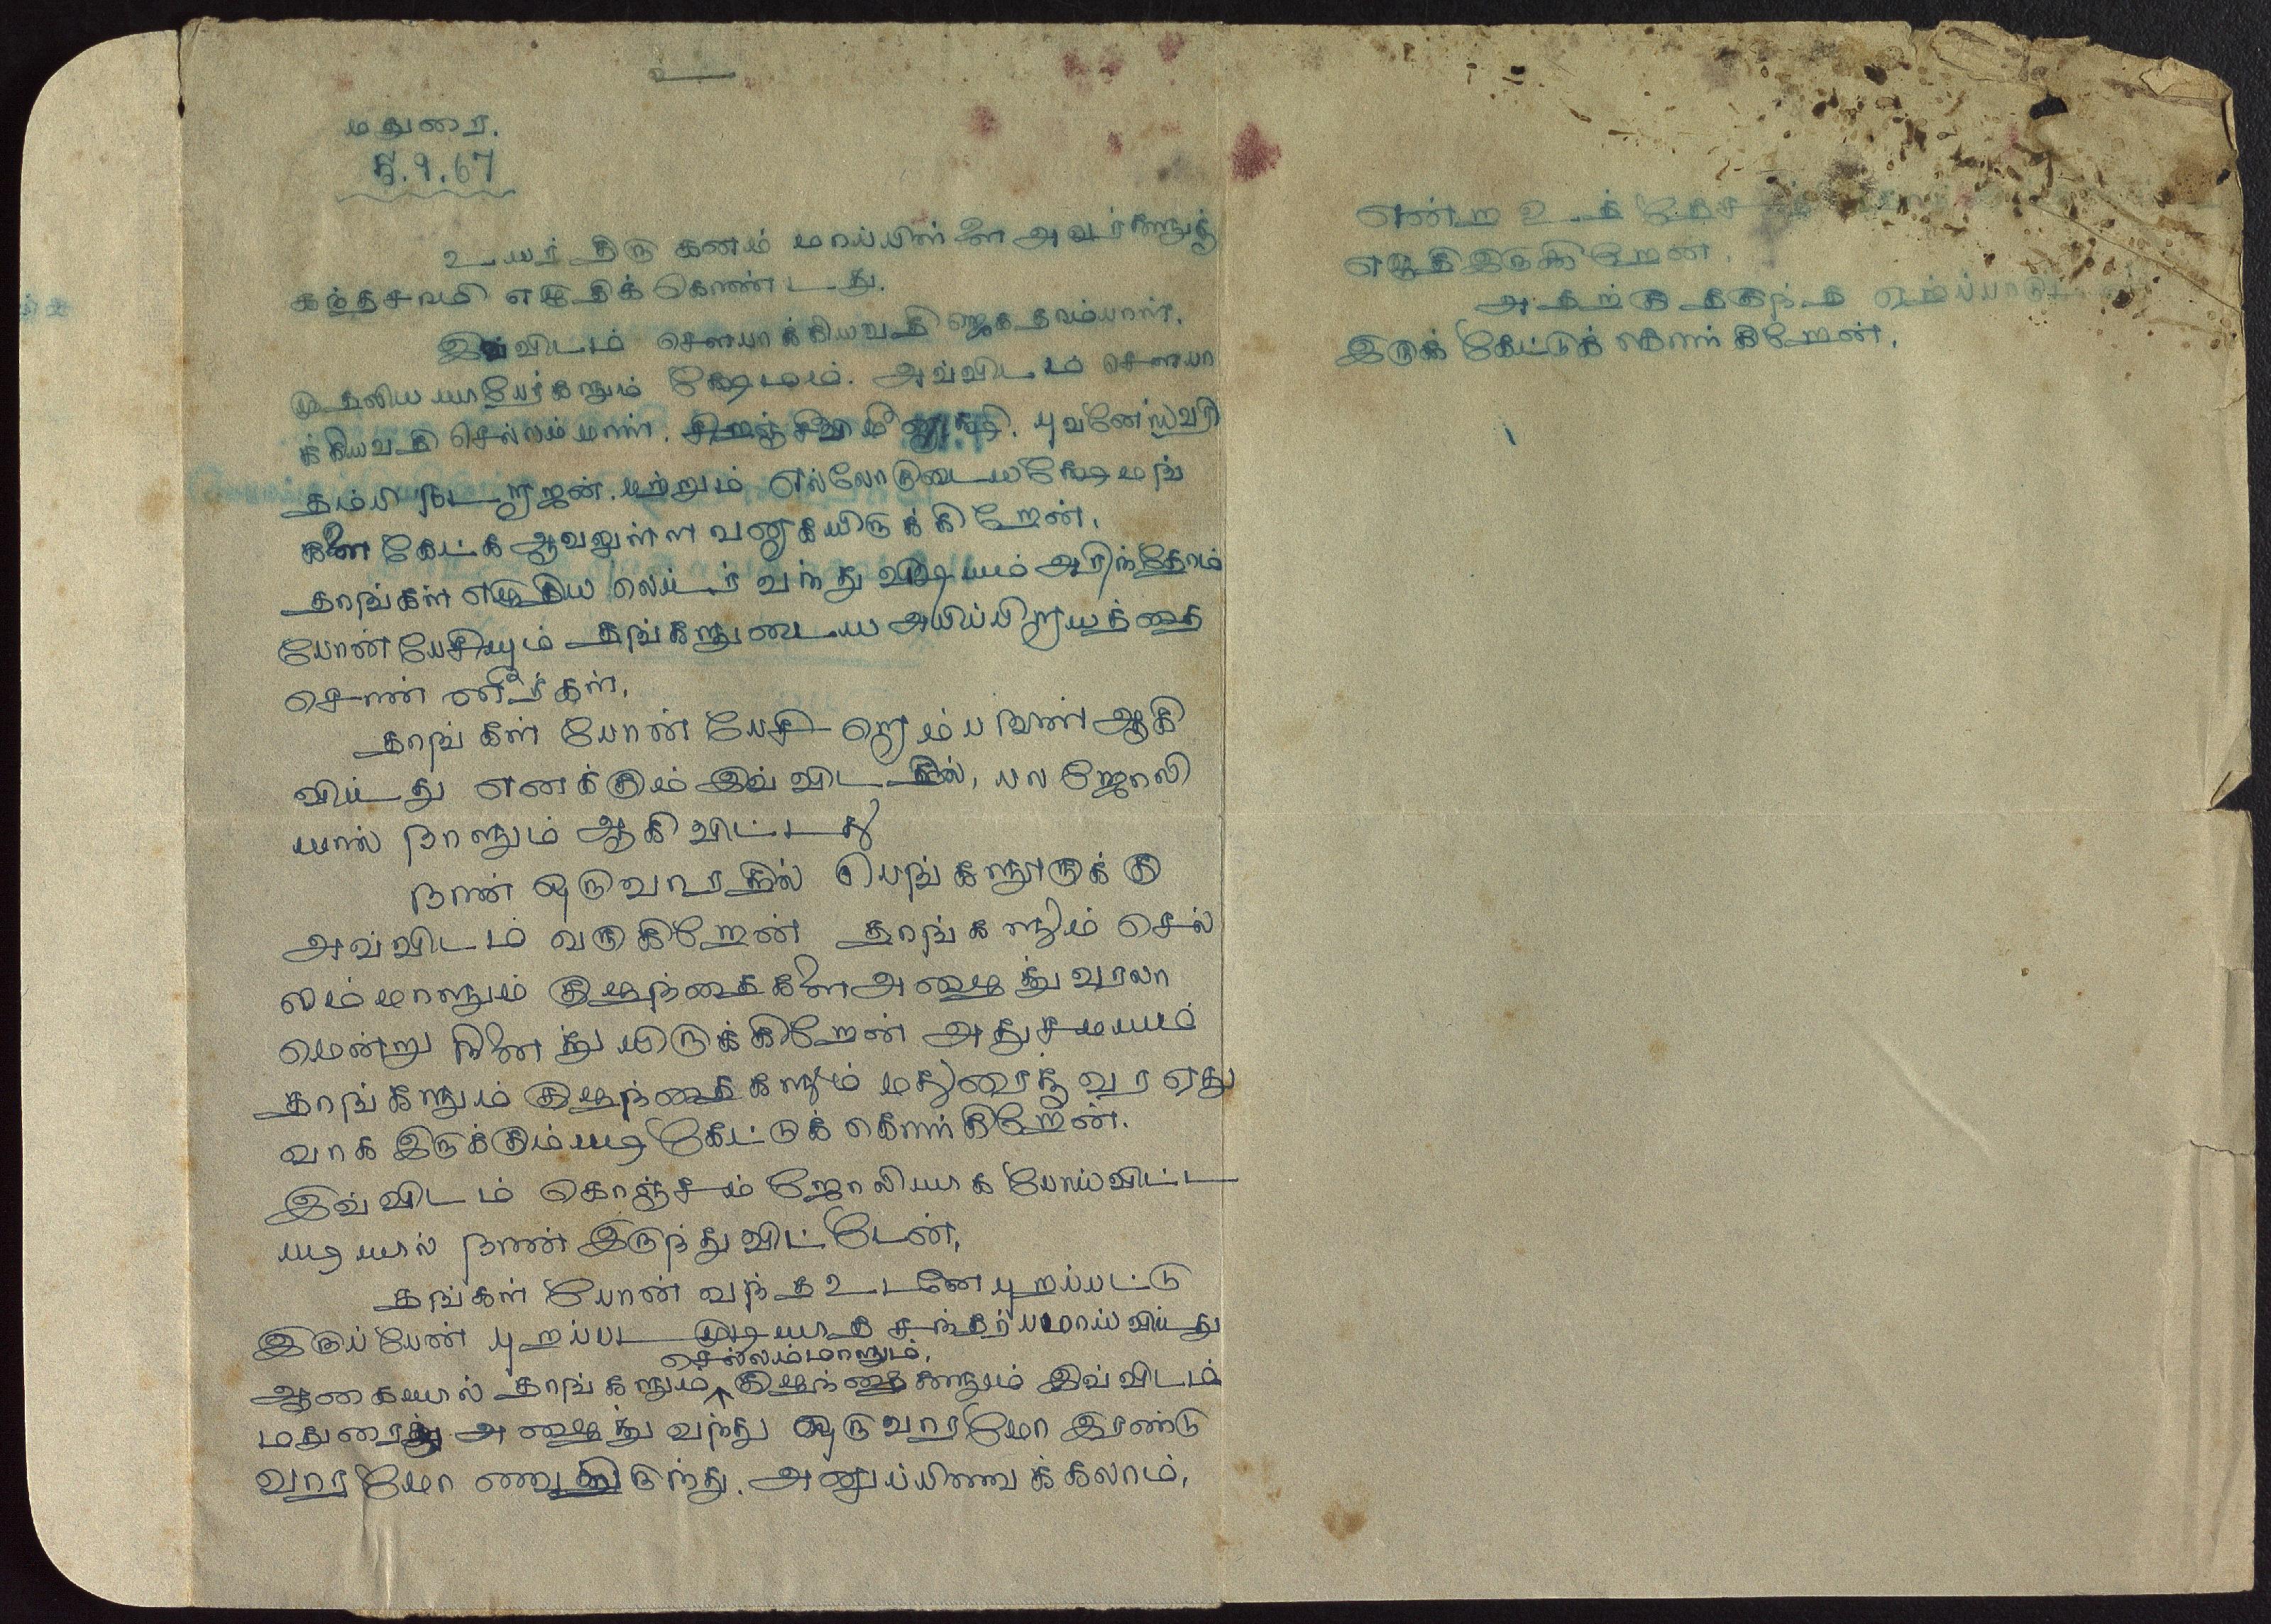 உ
மதுரை.
5.9.67
உயர் திரு கனம் மாப்பிள்ளை அவர்களுக்கு
கந்தசாமி எழுதிக் கொண்டது.
இவ்விடம் சௌபாக்கியவதி ஜெகதாம்பாள்.
முதலிய யாபேர்களும் க்ஷேமம். அவ்விடம் சௌபா
க்கியவதி செல்லம்மாள். சிரஞ்சீவி புவனேஸ்வரி
தம்பி நடராஜன். மற்றும் எல்லோருடைய க்ஷேமங்
களை கேட்க ஆவலுள்ள வனாகயிருக்கிறேன்.
தாங்கள் எழுதிய லெட்டர் வந்து விஷயம் அறிந்தோம்
போன் பேசியும் தங்களுடைய அபிப்பிராயத்தை
சொண்னீர்கள்.
தாங்கள் போன் பேசி ரொம்ப நாள் ஆகி
விட்டது எனக்கும் இவ்விடத்தில், பல ஜோலி
யால் நாளும் ஆகி விட்டது
நான் ஒரு வாரத்தில் பெங்களூருக்கு
அவ்விடம் வருகிறேன் தாங்களும் செல்
லம்மாளும் குழந்தைகளை அழைத்து வரலா
மென்று நினைத்து யிருக்கிறேன் அது சமயம்
தாங்களும் குழந்தைகளும் மதுரைக்கு வர ஏது
வாக இருக்கும்படி கேட்டுக் கொள்கிறேன்.
இவ்விடம் கொஞ்சம் ஜோலியாக போய்விட்ட
படியால் நான் இருந்து விட்டேன்.
தங்கள் போன் வந்த உடனே புறப்பட்டு
இருப்பேன் புறப்பட முடியாத சந்தர்பமாய் விட்டது
செல்லம்மாளும்,
ஆகையால் தாங்களும் குழந்தைகளும் இவ்விடம்
மதுரைக்கு அழைத்து வந்து ஒரு வாரமோ இரண்டு
வாரமோ இருந்து. அனுப்பிவைக்கலாம்,
என்ற உத்தேசம்
எழுதி இருக்கிறேன்.
அதற்கு தகுந்த ஏம்ப்பாடு
இருக் கேட்டுக் கொள்கிறேன்.